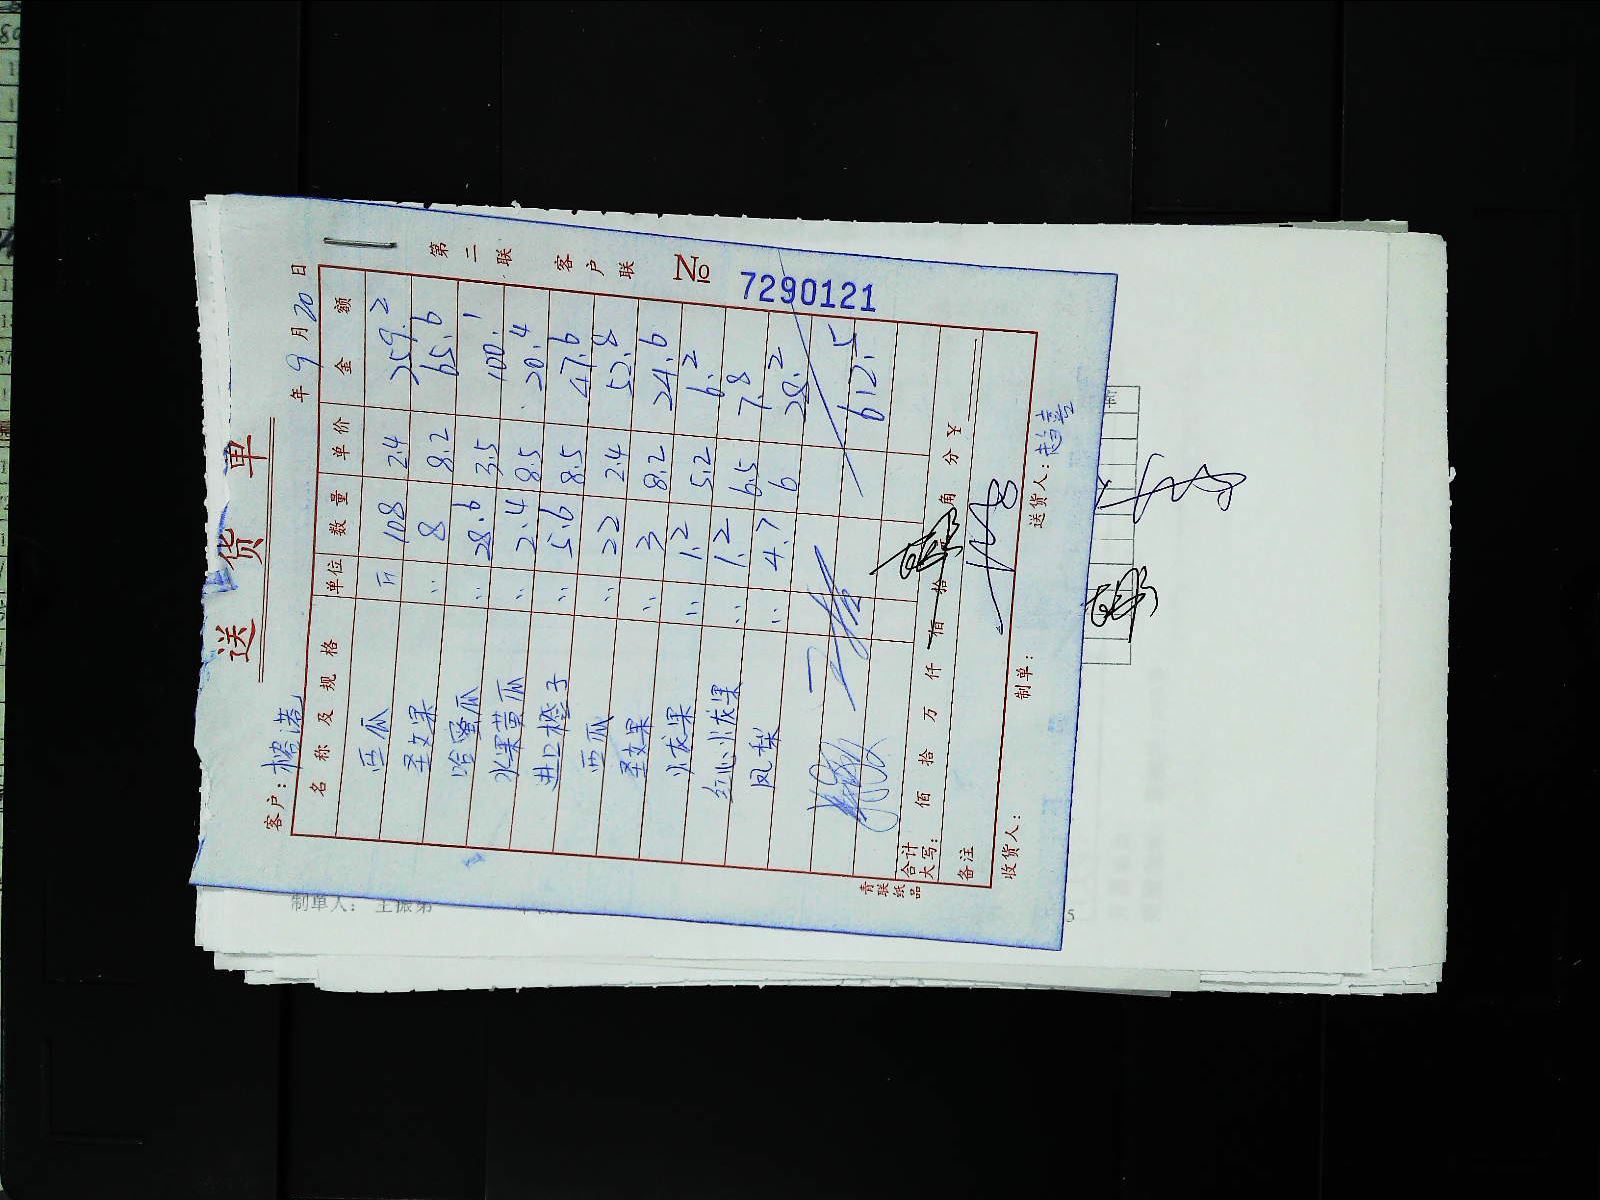 送货单
客户：榕港 年 9 月 20 日
名称及规格 单位 数量 单价 金额
西瓜 斤 108 2.4 259.2
圣女果 〃 8 8.2 65.6
哈蜜瓜 〃 28.6 3.5 100.1
水果黄瓜 〃 2.4 8.5 20.4
进口橙子 〃 5.6 8.5 47.6
西瓜 〃 22 2.4 52.8
圣女果 〃 3 8.2 24.6
火龙果 〃 1.2 5.2 6.2
红心火龙果 〃 1.2 6.5 7.8
凤梨 〃 4.7 6 28.2
612.5
合计大写： 佰 拾 万 仟 佰 拾 角 分 ¥
备注
收货人： 制单： 送货人：赵喜
第二联 客户联
№ 7290121
青联纸品
制单人： 王振第